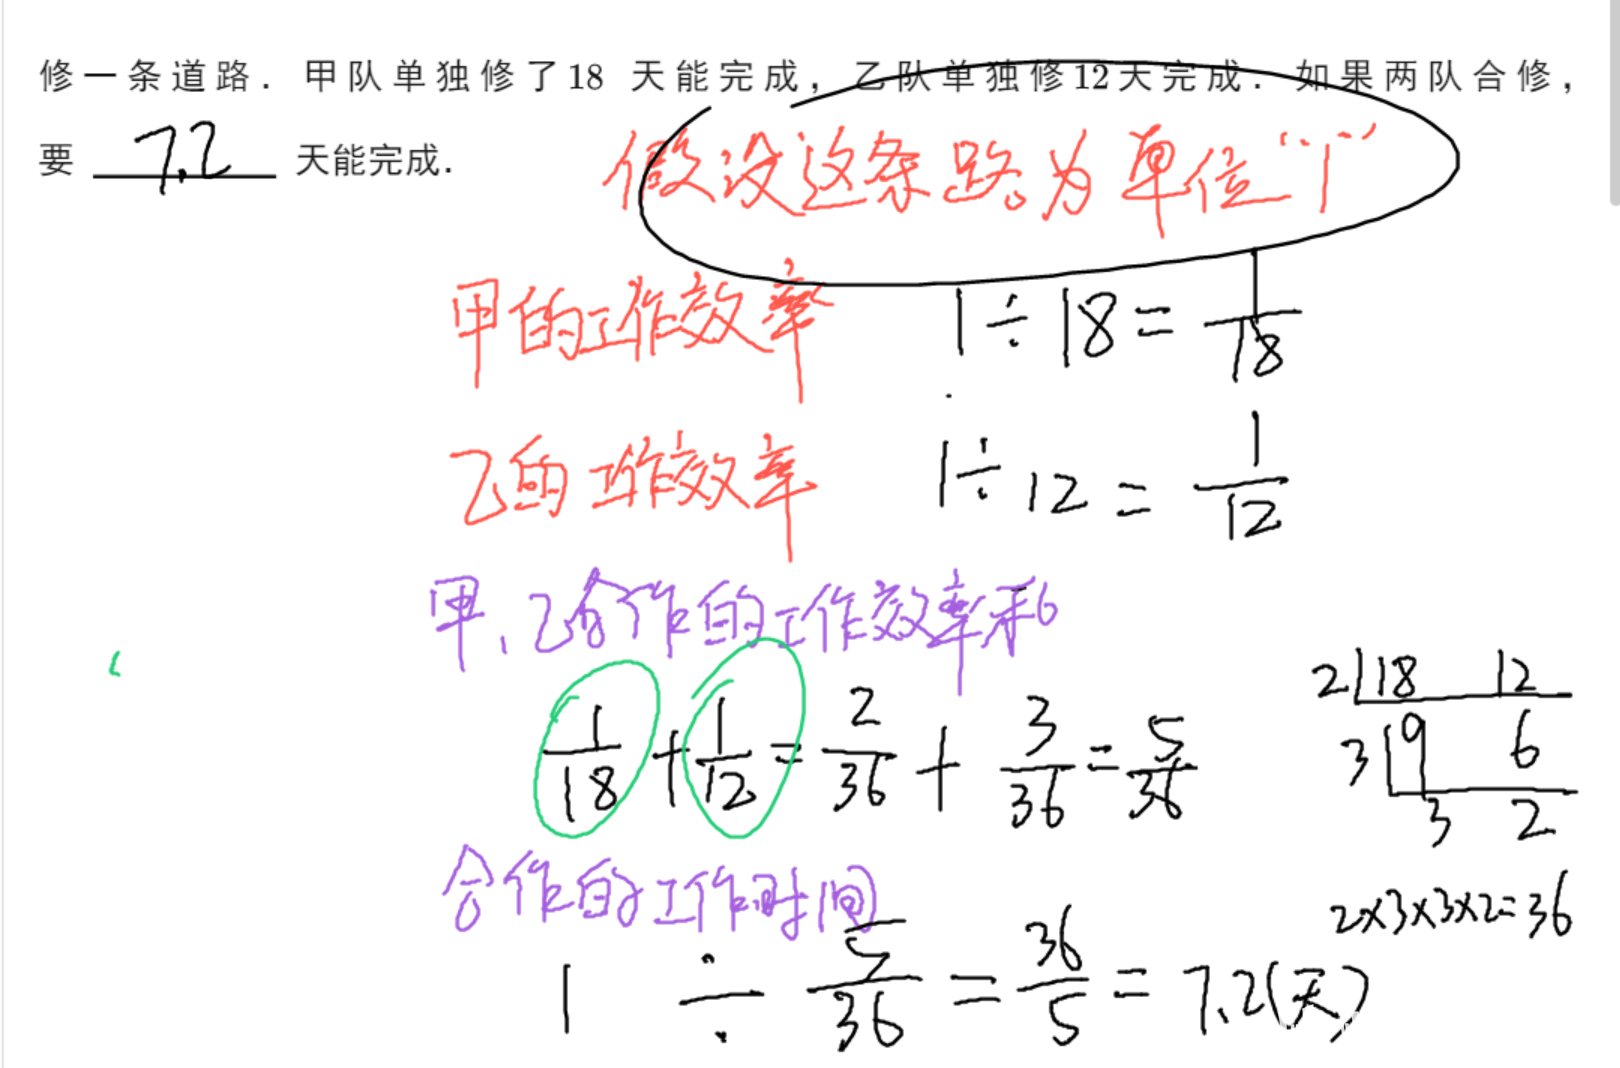 修一条道路．甲队单独修了18 天能完成，乙队单独修12天完成．如果两队合修，
要 7.2 天能完成．
假设这条路为单位“1”
甲的工作效率 1÷18=1/18
乙的工作效率 1÷12=1/12
甲、乙合作的工作效率和
1/18+1/12=2/36+3/36=5/36
2 18 12
3 9 6
3 2
合作的工作时间
2×3×3×2=36
1÷5/36=36/5=7.2(天)